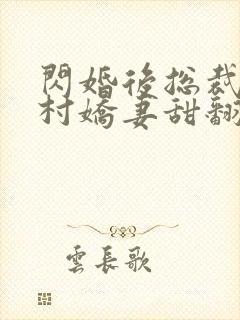 閃婚後總裁
村嬌妻甜翻
雲長歌